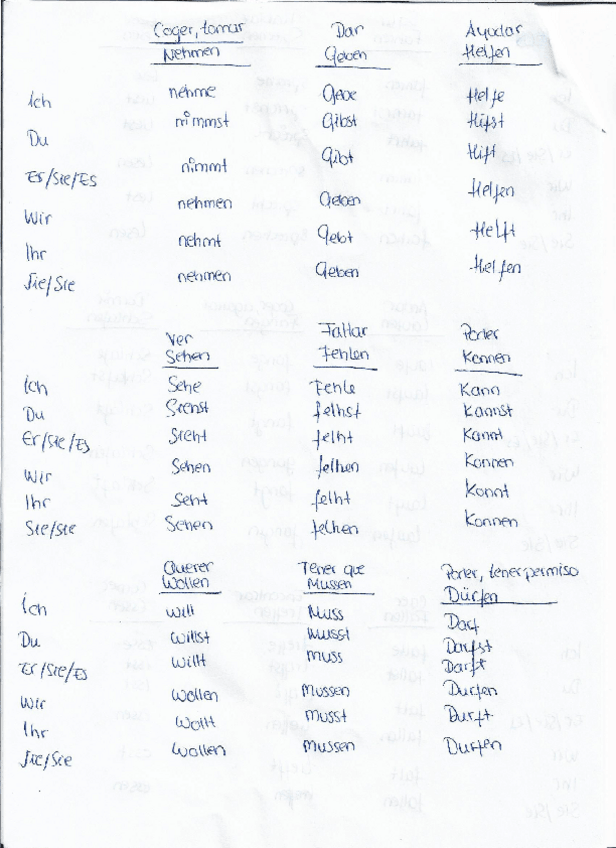 Coger, tomar Dar Ayudar
Nehmen Geben Helfen
Ich nehme Gebe Helfe
Du nimmst Gibst Hifst
Er/Sie/Es nimmt Gibt Hift
Wir nehmen Geben Helfen
Ihr nehmt Gebt Helft
Sie/Sie nehmen Geben Helfen
Ver Faltar Poder
Sehen Fehlen Konnen
Ich Sehe Fehle Kann
Du Siehst felhst Kannst
Er/Sie/Es Sieht felht Kannt
Wir Sehen felhen Konnen
Ihr Seht felht Konnt
Sie/Sie Sehen felhen Konnen
Querer Tener que Poder, tener permiso
Wollen Mussen Dürfen
Ich will Muss Darf
Du willst Musst Darfst
Er/Sie/Es willt muss Darft
Wir wollen Mussen Durfen
Ihr wollt musst Durft
Sie/Sie wollen mussen Durfen